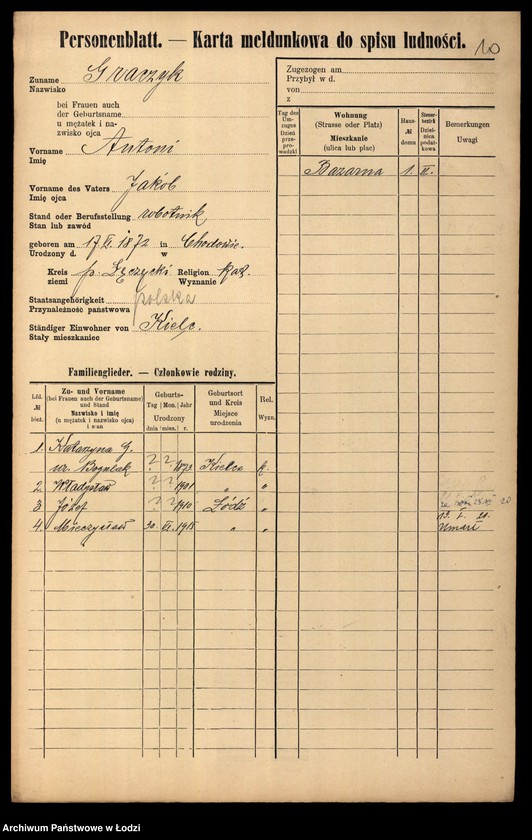 Personenblatt. — Karta meldunkowa do spisu ludności.
10
Zuname Graczyk
Nazwisko
bei Frauen auch
der Geburtsname
u mężatek i na-
zwisko ojca
Vorname Antoni
Imię
Vorname des Vaters Jakób
Imię ojca
Stand oder Berufsstellung robotnik
Stan lub zawód
geboren am 17 XI 1872 in Chodowie.
Urodzony d. w
Kreis p. Łęczycki Religion kat.
ziemi Wyznanie
Staatsangehörigkeit polska
Przynależność państwowa
Ständiger Einwohner von Kielc.
Stały mieszkaniec
Zugezogen am
Przybył w d.
von
z
Tag des Um-zuges Dzień prze-prowadzki
Wohnung (Strasse oder Platz) Mieszkanie (ulica lub plac)
Haus- № domu
Steuer-bezirk Dziel-nica podat-kowa
Bemerkungen Uwagi
Bazarna 1. VI.
Familienglieder. — Członkowie rodziny.
Lfd. № bież.
Zu- und Vorname (bei Frauen auch der Geburtsname) und Stand Nazwisko i imię (a mężatek i nazwisko ojca) i stan
Geburts- Tag Mon. Jahr Urodzony dnia mies. r.
Geburtsort und Kreis Miejsce urodzenia
Rel. Wyzn.
1. Katarzyna G.
ur. Bogniak ? ? 1873 Kielce k.
2. Władysław ? ? 1901 " "
3 Józef ? ? 1910 Łódź "
4. Mieczysław 30. VI. 1918 " "
20
13. I. 20.
Umarł
Archiwum Państwowe w Łodzi